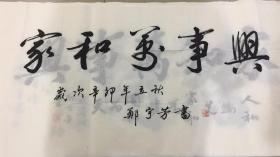 家和萬事興
歲次辛卯年五秋
鄭宇芳書